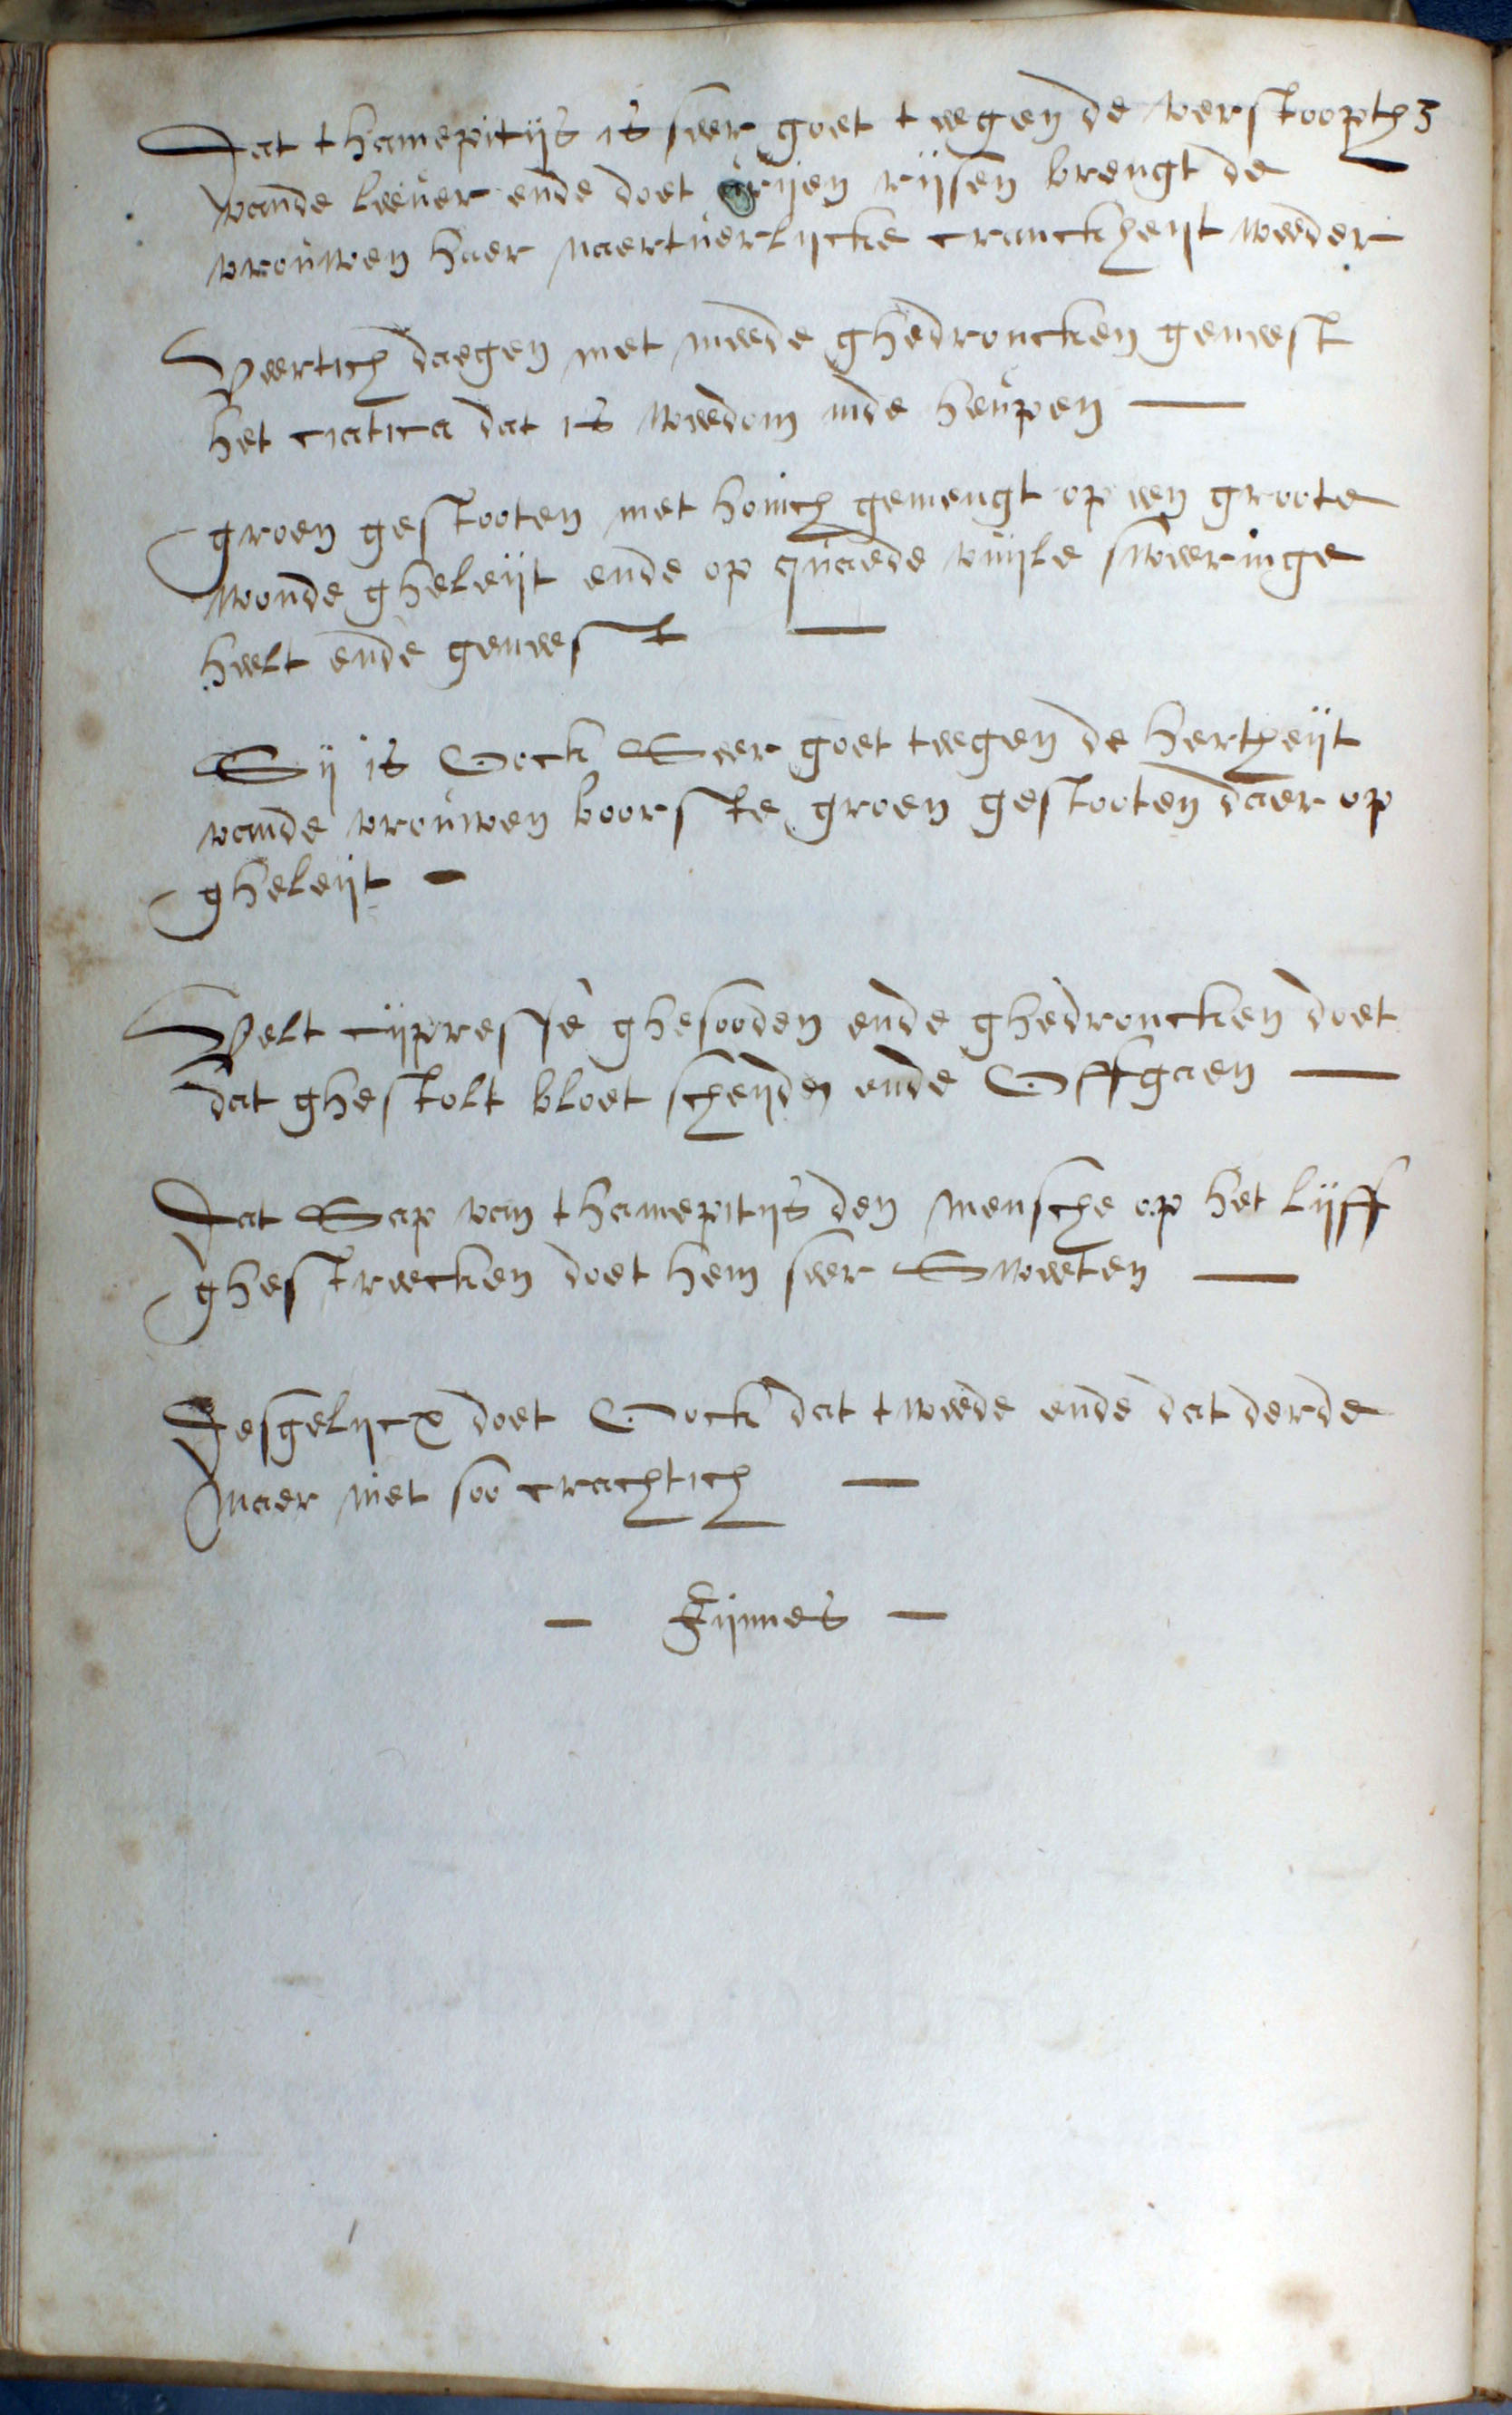 Dat thamepitijs is seer goet teegen de verstoopth
vande leever ende doet rijsen brengt de
vrouwen haer naertuerlijcke cranckheyt weeder
Veertich daegen met meede ghedroncken geneest
het ciatica dat is weedom inde heupen —
groen gestooten met honich gemengt op een groote
wonde gheleyt ende op quaede vuyle sweeringe
heelt ende geneest —
Sij is Oock Seer goet teegen de hertheyt
vande vrouwen boorste groen gestooten daer op
gheleyt -
Velt cijpresse ghesooden ende ghedroncken doet
dat ghestolt bloet scheyden ende Offgaen —
Dat Sap van thamepitijs den mensche op het lijff
ghestreecken doet hem seer Sweeten —
Desgelijcx doet Oock dat tweede ende dat derde
maer niet soo crachtich —
— Fijnnes —